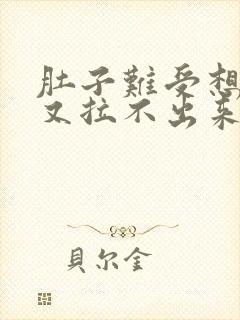 肚子難受想
又拉不出來
貝尔金